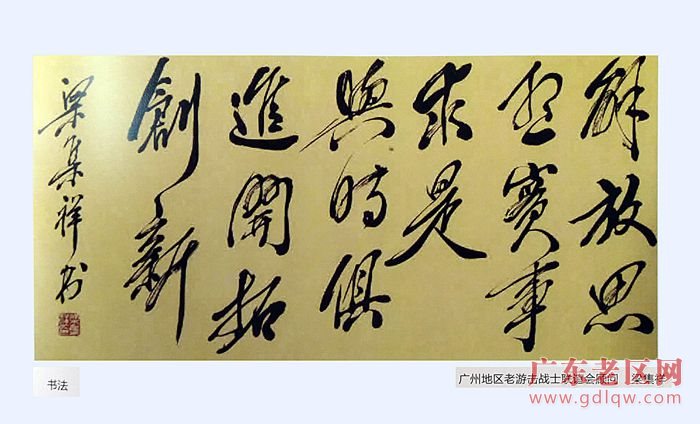 解放思
想實事
求是
與時俱
進開拓
創新
梁集祥书
书法
广州地区老游击战士联谊会顾问 梁集祥
广东老区网
www.gdlqw.com